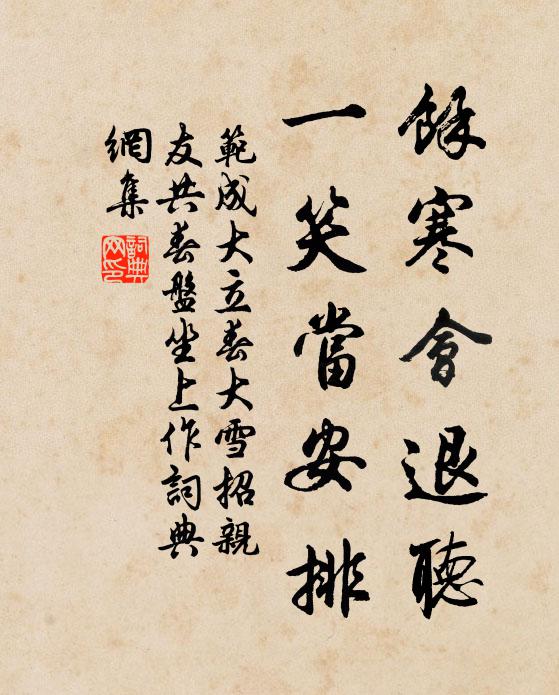 餘寒會退聽
一笑當安排
範成大立春大雪招親
友共春盤坐上作詞典
網集
詞典
网印